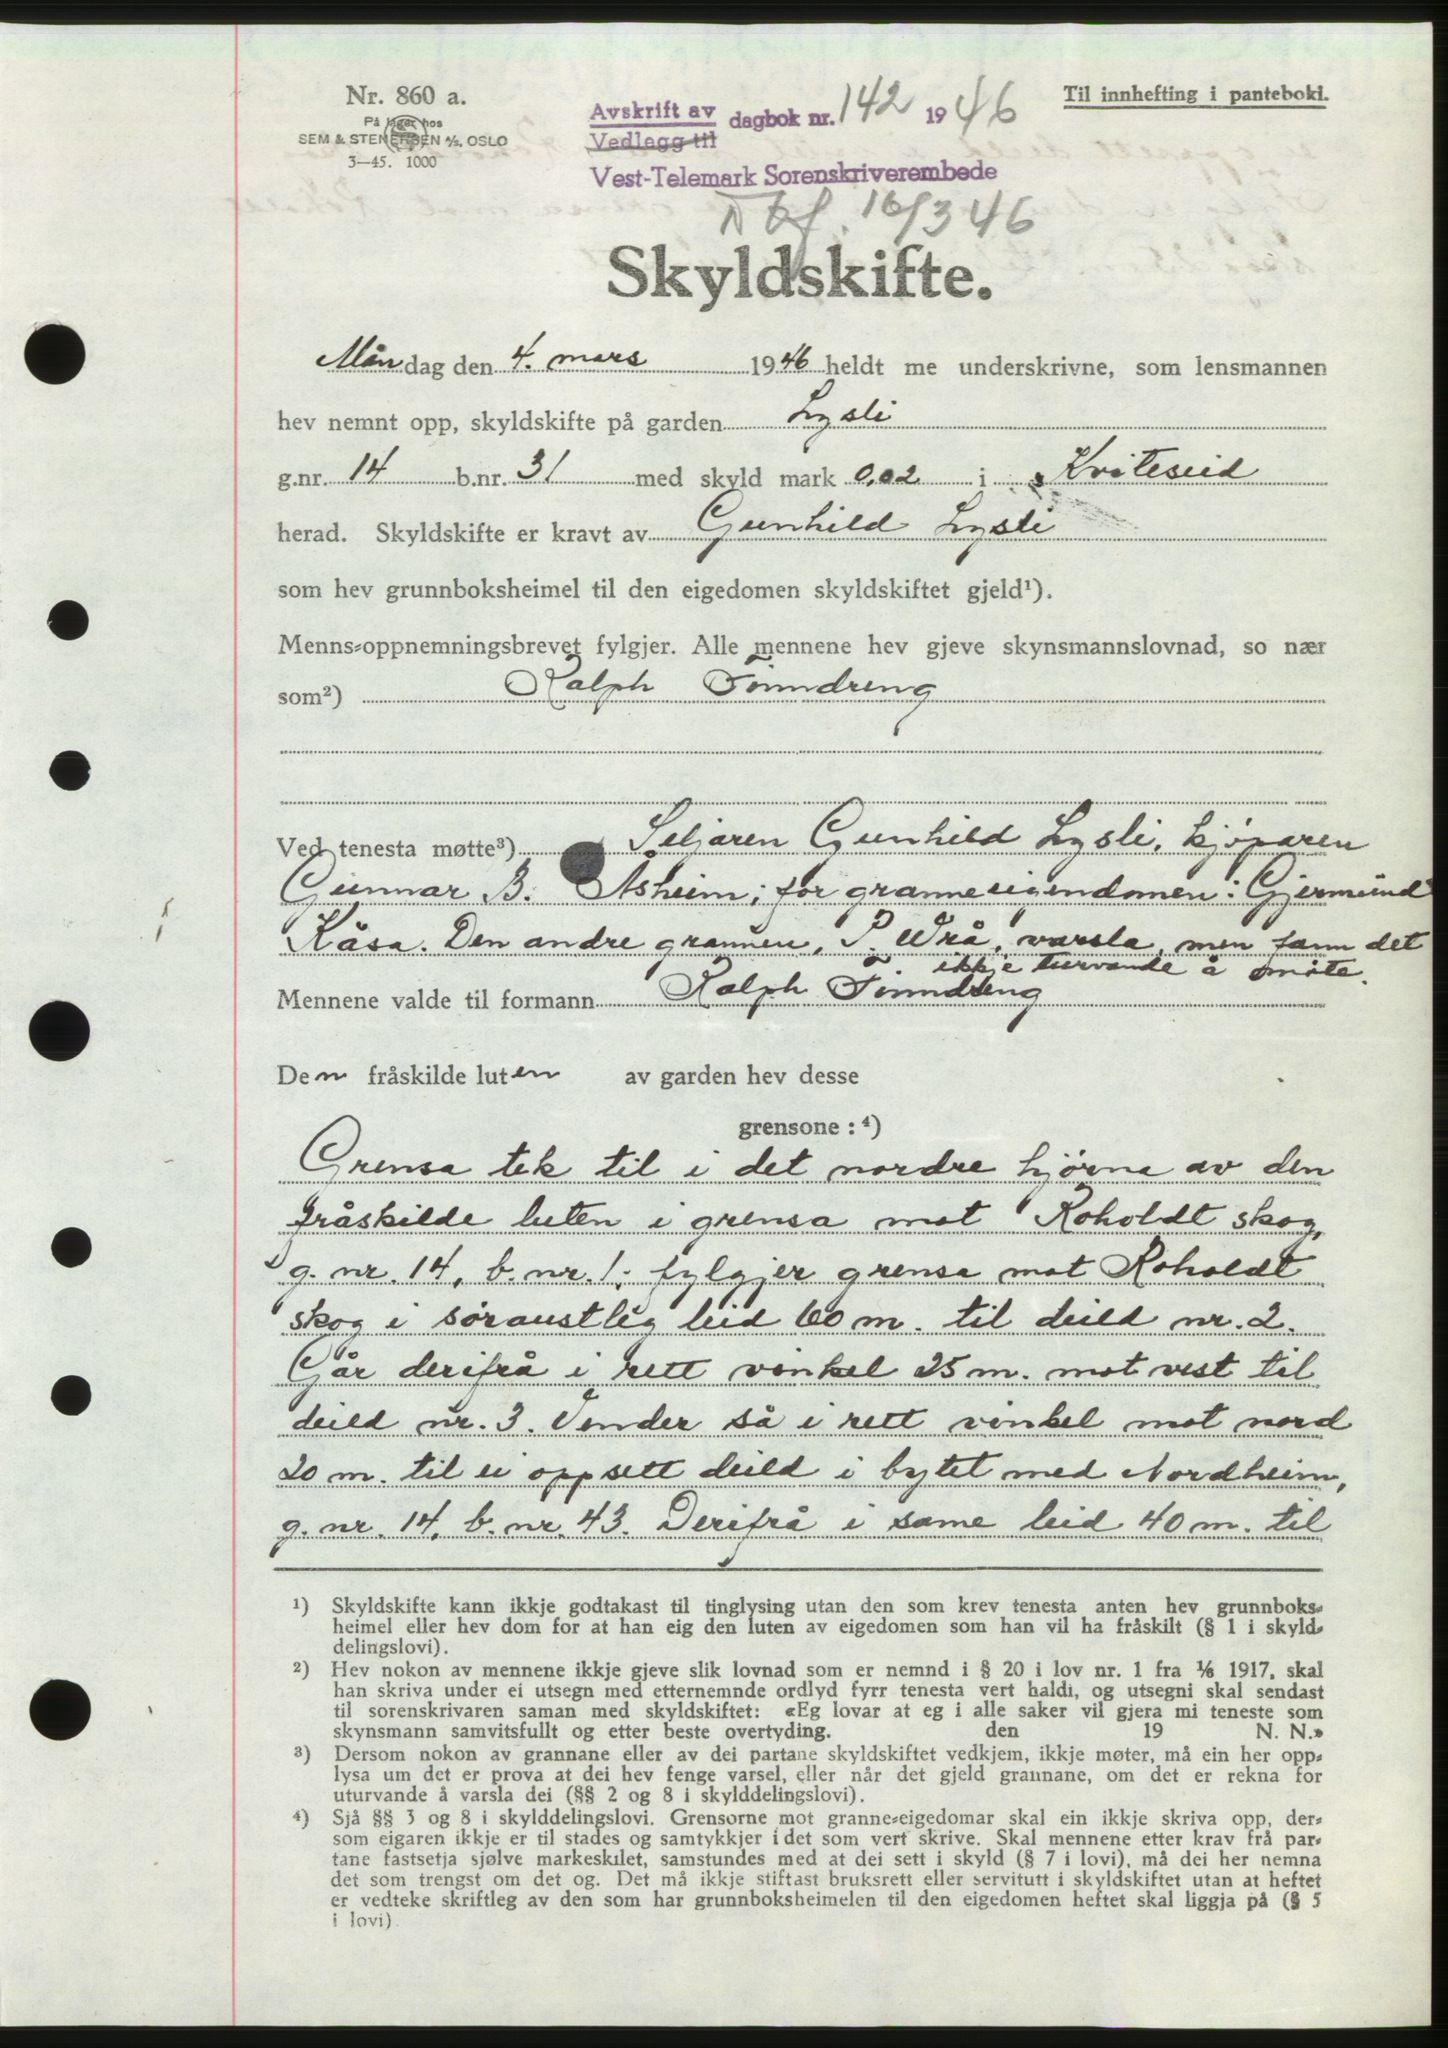 Nr. 860 a.
På lager hos
SEM & STENERSEN A/S, OSLO
3—45. 1000
Avskrift av
Vedlegg til
dagbok nr. 142 1946
Vest-Telemark Sorenskriverembede
Til innhefting i panteboki.
16/3 46
Skyldskifte.
Måndag den 4. mars 1946 heldt me underskrivne, som lensmannen
hev nemnt opp, skyldskifte på garden Lysli
g.nr. 14 b.nr. 31 med skyld mark 0,02 i Kviteseid
herad. Skyldskifte er kravt av Gunhild Lysli
som hev grunnboksheimel til den eigedomen skyldskiftet gjeld¹).
Menns-oppnemningsbrevet fylgjer. Alle mennene hev gjeve skynsmannslovnad, so nær
som²) Ralph Finndreng
Ved tenesta møtte³) Seljaren Gunhild Lysli, kjøparen
Gunnar B. Åsheim; for granneeigendomen: Gjermund
Kåsa. Den andre grannen, P. Wrå, varsla, men fann det
ikkje turvande å møte.
Mennene valde til formann Ralph Finndreng
Den fråskilde luten av garden hev desse
grensone : ⁴)
Grensa tek til i det nordre hjørna av den
fråskilde luten i grensa mot Roholdt skog,
g. nr. 14, b. nr. 1; fylgjer grensa mot Roholdt
skog i søraustleg leid 60 m. til deild nr. 2.
Går derifrå i rett vinkel 25 m. mot vest til
deild nr. 3. Vender så i rett vinkel mot nord
20 m. til ei oppsett deild i bytet med Nordheim,
g. nr. 14, b. nr. 43. Derifrå i same leid 40 m. til
¹) Skyldskifte kann ikkje godtakast til tinglysing utan den som krev tenesta anten hev grunnboks-
heimel eller hev dom for at han eig den luten av eigedomen som han vil ha fråskilt (§ 1 i skyld-
delingslovi).
²) Hev nokon av mennene ikkje gjeve slik lovnad som er nemnd i § 20 i lov nr. 1 fra 1/6 1917, skal
han skriva under ei utsegn med etternemnde ordlyd fyrr tenesta vert haldi, og utsegni skal sendast
til sorenskrivaren saman med skyldskiftet: «Eg lovar at eg i alle saker vil gjera mi teneste som
skynsmann samvitsfullt og etter beste overtyding. den 19 N. N.»
³) Dersom nokon av grannane eller av dei partane skyldskiftet vedkjem, ikkje møter, må ein her opp-
lysa um det er prova at dei hev fenge varsel, eller når det gjeld grannane, om det er rekna for
uturvande å varsla dei (§§ 2 og 8 i skylddelingslovi).
⁴) Sjå §§ 3 og 8 i skylddelingslovi. Grensorne mot granne-eigedomar skal ein ikkje skriva opp, der-
som eigaren ikkje er til stades og samtykkjer i det som vert skrive. Skal mennene etter krav frå par-
tane fastsetja sjølve markeskilet, samstundes med at dei sett i skyld (§ 7 i lovi), må dei her nemna
det som trengst om det og. Det må ikkje stiftast bruksrett eller servitutt i skyldskiftet utan at heftet
er vedteke skriftleg av den som har grunnboksheimelen til den eigedomen heftet skal liggja på (§ 5
i lovi)